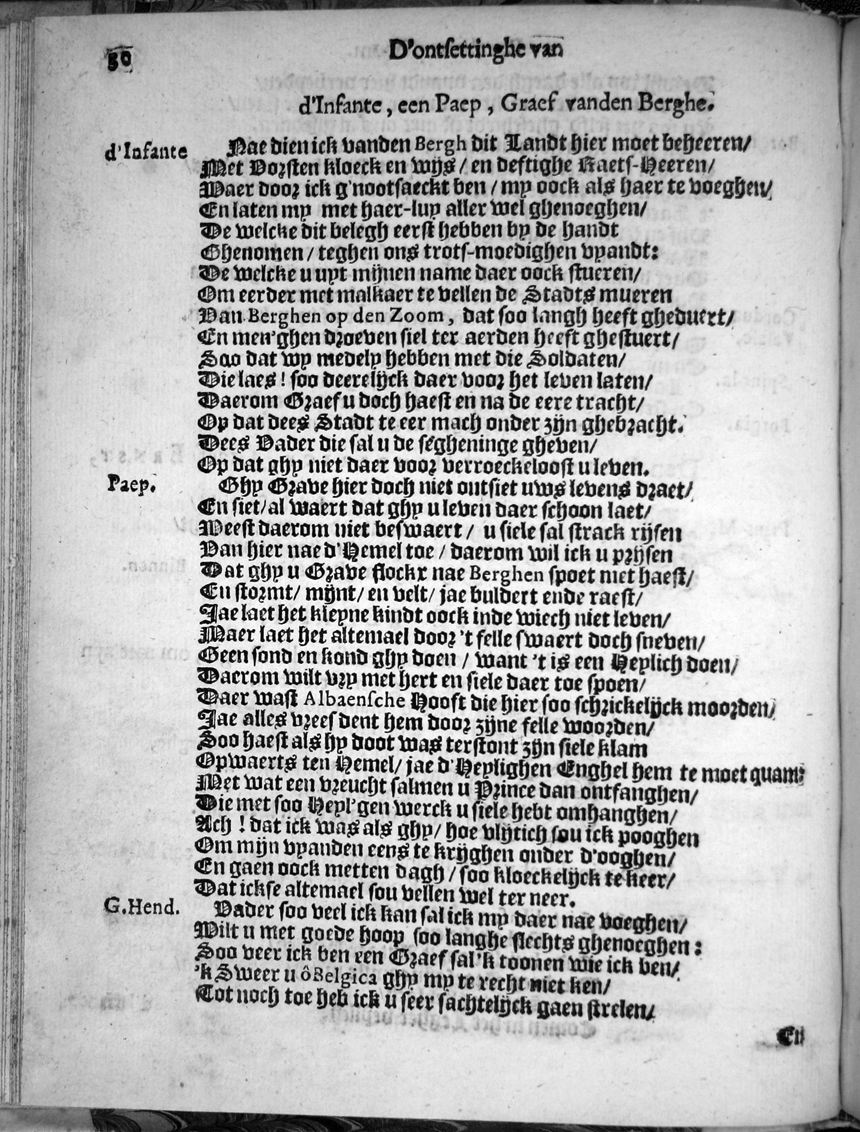 50
D'ontsettinghe van
d'Infante, een Paep, Graef vanden Berghe.
d'Infante Nae dien ick vanden Bergh dit Landt hier moet beheeren/
Met Vorsten kloeck en wijs/ en deftighe Raets-Heeren/
Waer door ick g'nootsaeckt ben/ my oock als haer te voeghen/
En laten my met haer-luy aller wel ghenoeghen/
De welcke dit belegh eerst hebben by de handt
Ghenomen/ teghen ons trots-moedighen vyandt:
De welcke u uyt mijnen name daer oock stueren/
Om eerder met malkaer te vellen de Stadts mueren
Van Berghen op den Zoom, dat soo langh heeft gheduert/
En men'ghen droeven siel ter aerden heeft ghestuert/
Soo dat wy medely hebben met die Soldaten/
Die laes! soo deerelijck daer voor het leven laten/
Daerom Graef u doch haest en na de eere tracht/
Op dat dees Stadt te eer mach onder zijn ghebracht.
Dees Vader die sal u de segheninge gheven/
Op dat ghy niet daer voor verroeckeloost u leven.
Paep. Ghy Grave hier doch niet ontsiet uws levens draet/
En siet/al waert dat ghy u leven daer schoon laet/
Weest daerom niet beswaert/ u siele sal strack rijsen
Van hier nae d'Hemel toe/ daerom wil ick u prijsen
Dat ghy u Grave flockx nae Berghen spoet met haest/
En stormt/ mijnt/ en velt/ jae buldert ende raest/
Jae laet het kleyne kindt oock inde wiech niet leven/
Maer laet het altemael door 't felle swaert doch sneven/
Geen sond en kond ghy doen/ want 't is een Heylich doen/
Daerom wilt vry met hert en siele daer toe spoen/
Daer wast Albaensche Hooft die hier soo schrickelijck moorden/
Jae alles vrees dent hem door zijne felle woorden/
Soo haest als hy doot was terstont zijn siele klam
Opwaerts ten Hemel/ jae d'Heylighen Enghel hem te moet quam:
Met wat een vreucht salmen u Prince dan ontfanghen/
Die met soo Heyl'gen werck u siele hebt omhanghen/
Ach! dat ick was als ghy/ hoe vlijtich sou ick pooghen
Om mijn vyanden eens te krijghen onder d'ooghen/
En gaen oock metten dagh/ soo kloeckelijck te keer/
Dat ickse altemael sou vellen wel ter neer.
G.Hend. Vader soo veel ick kan sal ick my daer nae voeghen/
Wilt u met goede hoop soo langhe slechts ghenoeghen:
Soo veer ick ben een Graef sal'k toonen wie ick ben/
'k Sweer u ô Belgica ghy my te recht niet ken/
Tot noch toe heb ick u seer sachtelijck gaen strelen/
En